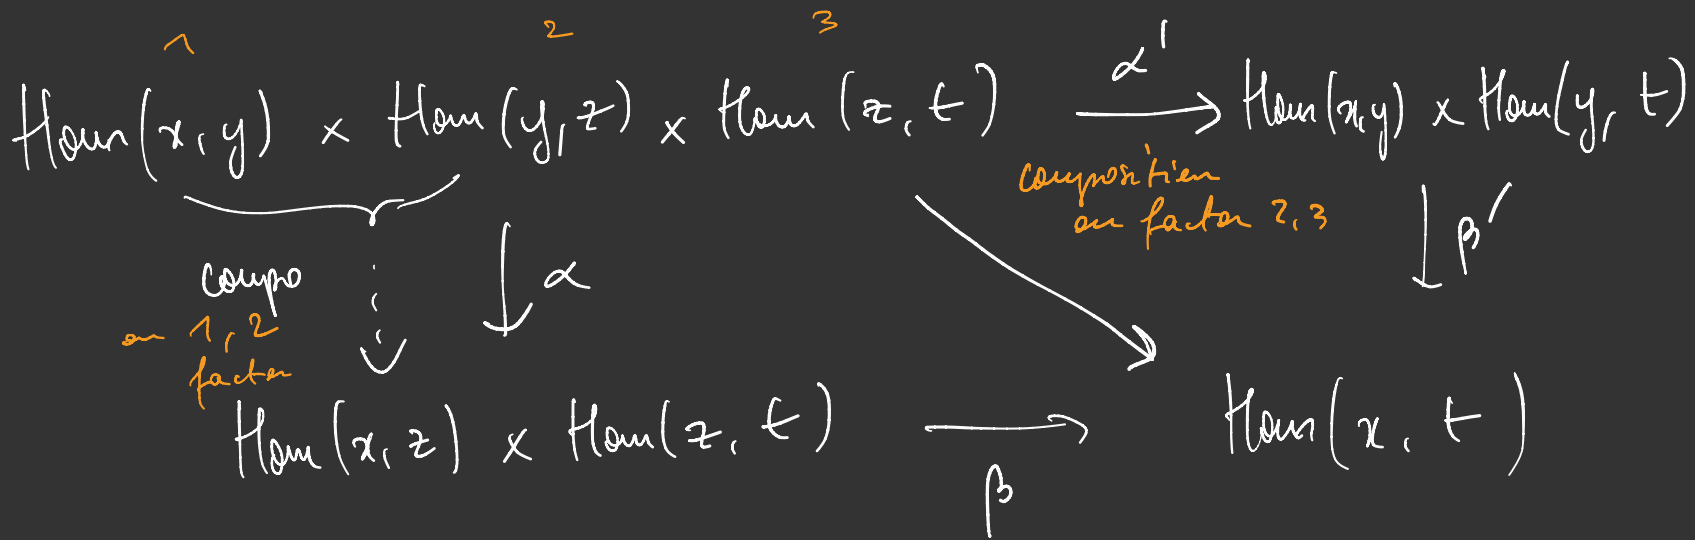 1 2 3
Hom(x, y) × Hom(y, z) × Hom(z, t) α' Hom(x,y) × Hom(y, t)
composition
on factor 2, 3
β'
compo
α
on 1, 2
factor
Hom(x, z) × Hom(z, t) Hom(x, t)
β